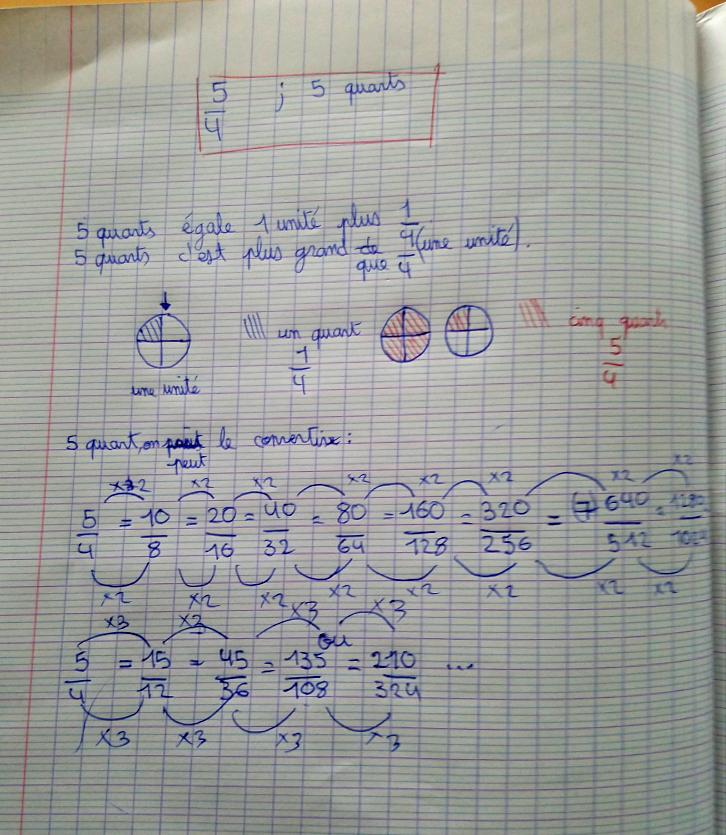 5/4 ; 5 quarts
5 quarts égale 1 unité plus 1/4
5 quarts c'est plus grand de que 4/4 (une unité).
un quart 1/4
cinq quarts 5/4
une unité
5 quart, on peut le convertire :
×2 ×2 ×2 ×2 ×2 ×2 ×2 ×2
5/4 = 10/8 = 20/16 = 40/32 = 80/64 = 160/128 = 320/256 = 640/512 = 1280/1024
×2 ×2 ×2 ×2 ×2 ×2 ×2 ×2
×3 ×3 ×3 ×3
ou
5/4 = 15/12 = 45/36 = 135/108 = 210/324 ...
×3 ×3 ×3 ×3